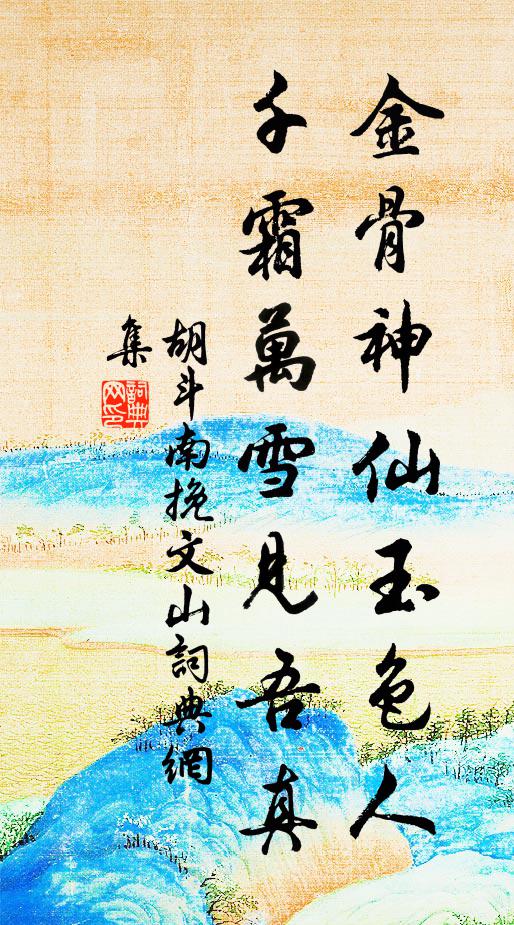 金骨神仙玉色人
千霜萬雪見吾真
胡斗南挽文山詞典網
集
詞典
网印